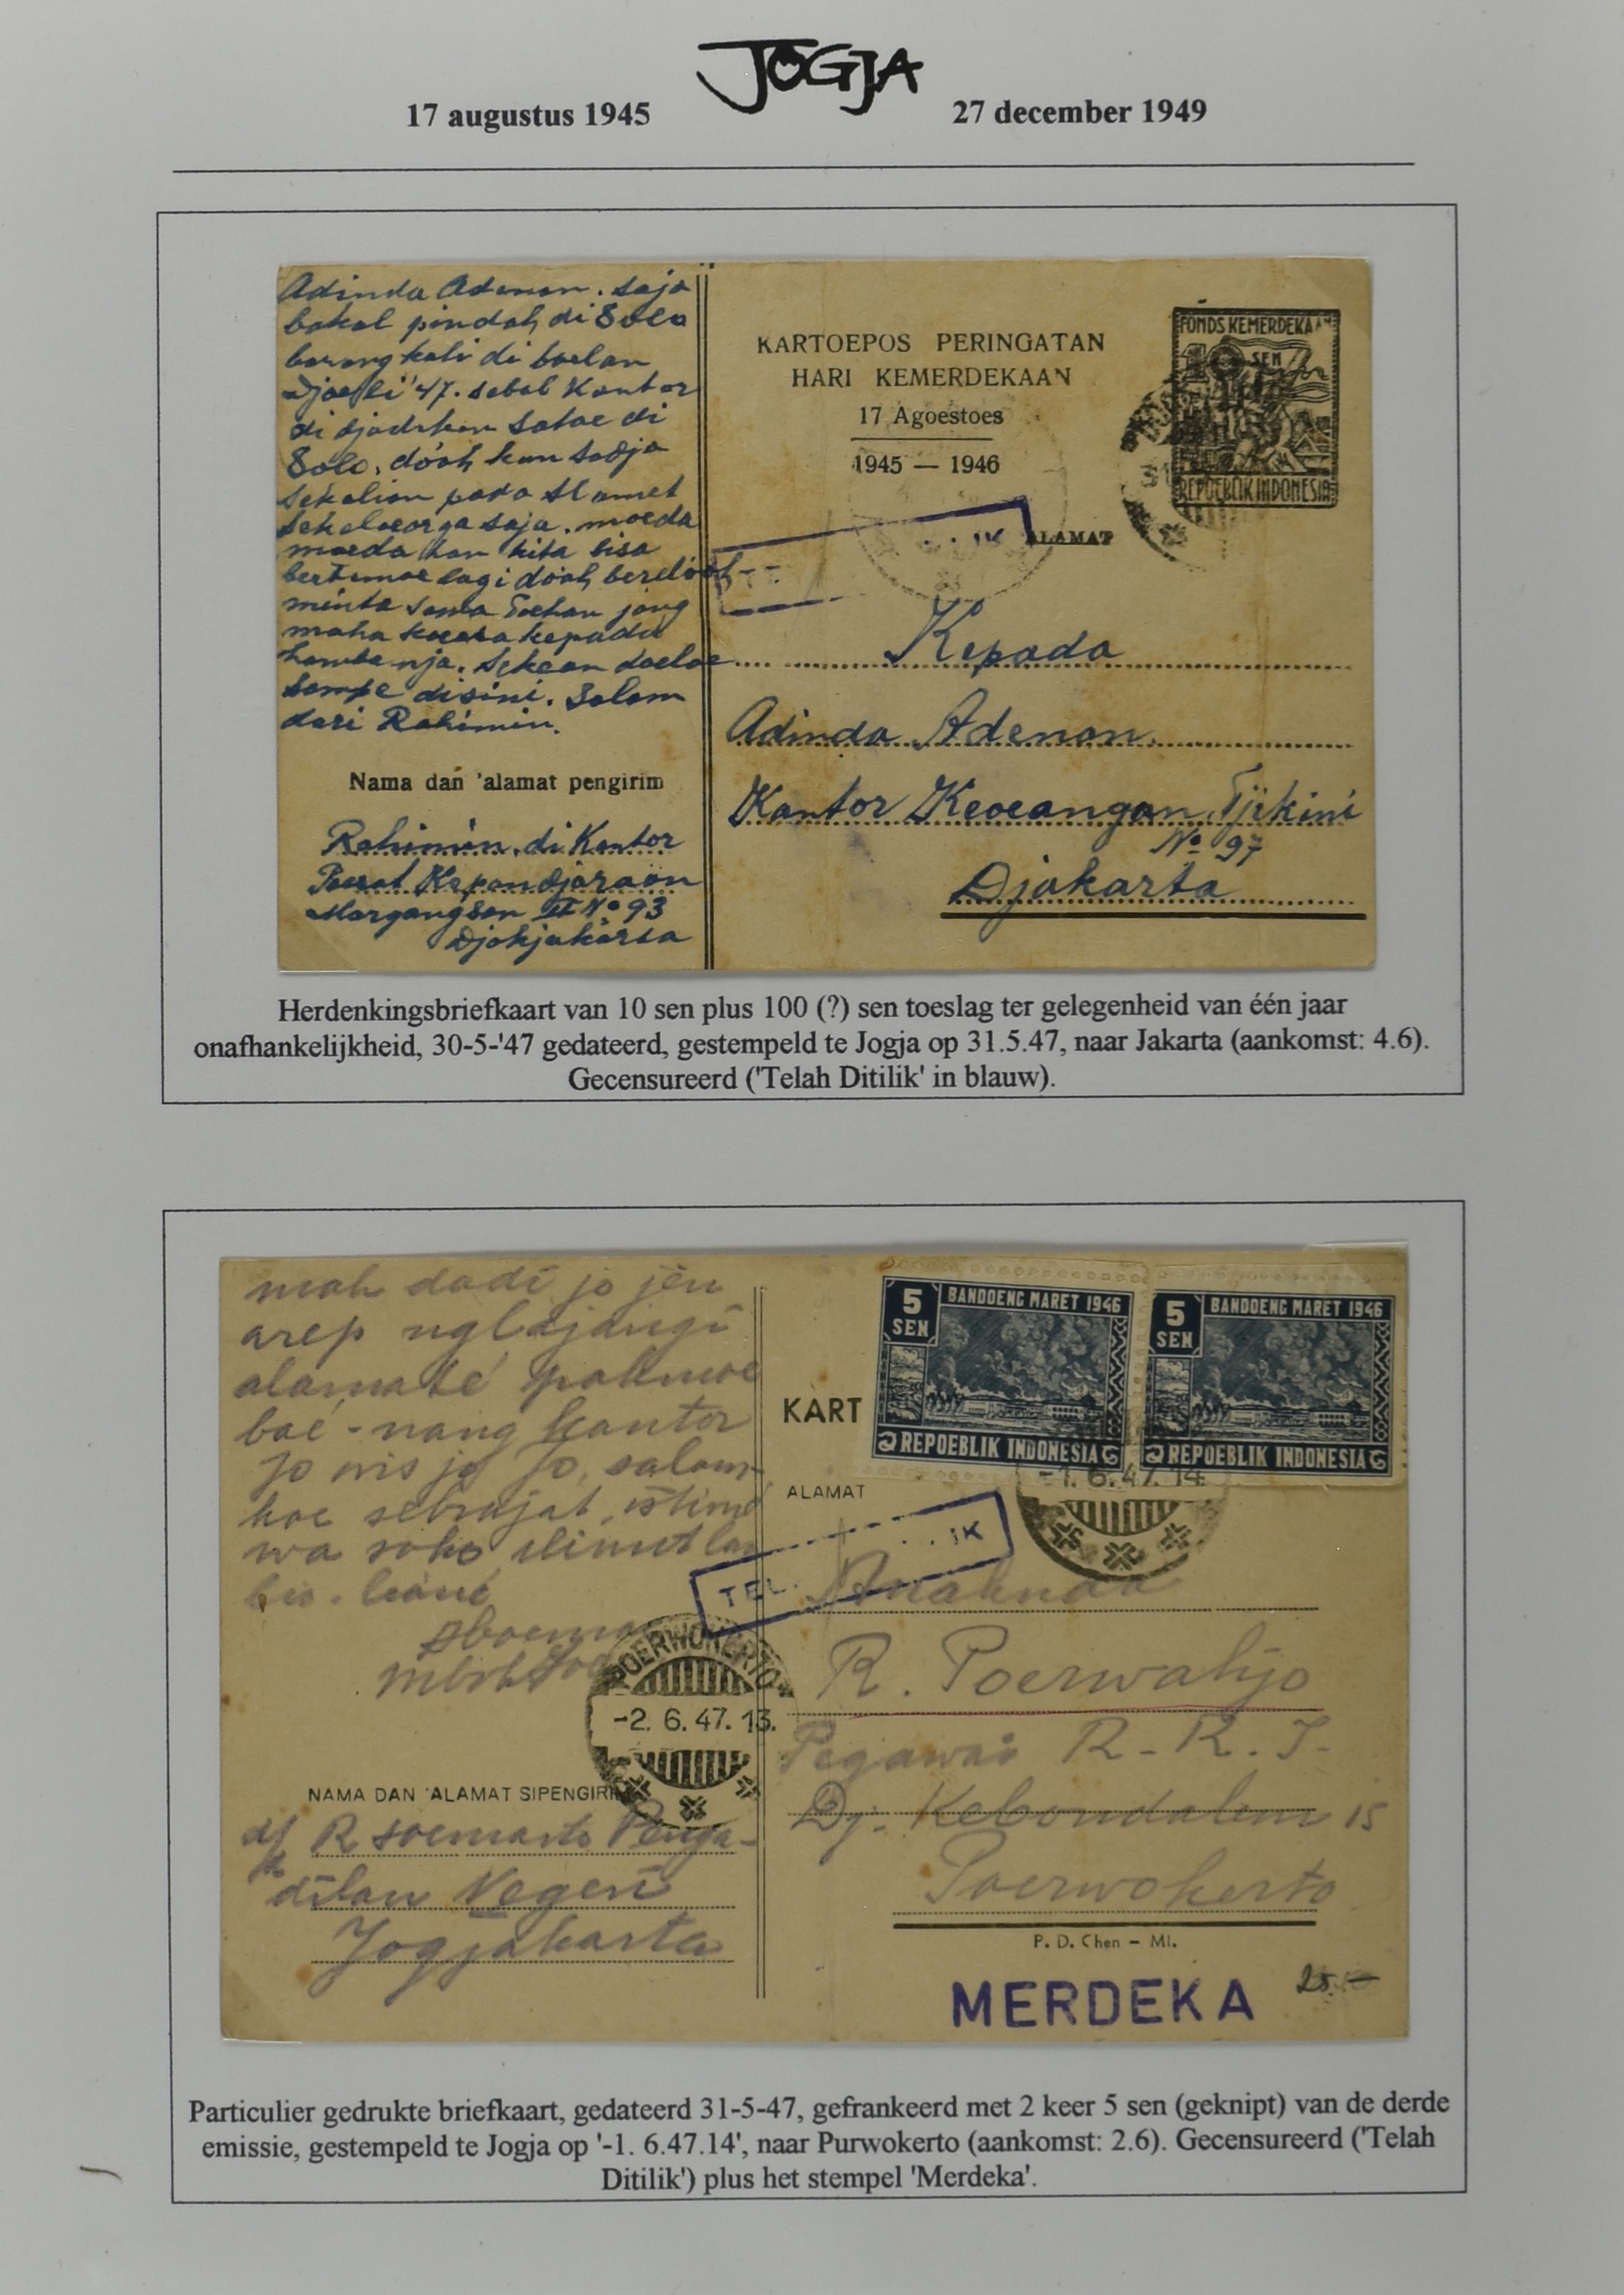 JOGJA
17 augustus 1945
27 december 1949
Adinda Adenan. Saja
bakal pindah di Solo
barangkali di boelan
Djoeli '47. sebab Kantor
di djadikan satoe di
Solo. do'ah kan sadja
sekalian pada slamet
sekeloearga saja. moeda
moeda han kita bisa
bertemoe lagi do'ah berdo'ah
minta sama Toehan jang
maha koeasa kepada
hambanja. Sekean doeloe
sampe disini. Salam
dari Rahimin.
Nama dan 'alamat pengirim
Rahimin. di Kantor
Poesat Kepandjaraan
Margangsan II No 93
Djokjakarta
KARTOEPOS PERINGATAN
HARI KEMERDEKAAN
17 Agoestoes
1945 — 1946
FONDS KEMERDEKAAN
10 SEN
REPOEBLIK INDONESIA
31
IK
ALAMAT
Kepada
Adinda Adenan.
Kantor Keoeangan. Tjikini
No 97
Djakarta
Herdenkingsbriefkaart van 10 sen plus 100 (?) sen toeslag ter gelegenheid van één jaar
onafhankelijkheid, 30-5-'47 gedateerd, gestempeld te Jogja op 31.5.47, naar Jakarta (aankomst: 4.6).
Gecensureerd ('Telah Ditilik' in blauw).
mah dadi jo jèn
arep nglajangi
alamaté pakmoe
baé - nang kantor
jo wis jo jo, salam
koe
NAMA DAN 'ALAMAT SIPENGIRI
R Soemarto Penga-
dilan Negeri
Jogjakarta
POERWOKERTO
-2. 6. 47. 13.
KART
5 SEN
BANDOENG MARET 1946
REPOEBLIK INDONESIA
5 SEN
BANDOENG MARET 1946
REPOEBLIK INDONESIA
-1. 6. 47. 14
ALAMAT
TEL
IK
Anaknda
R. Poerwahjo
Pegawai R. R. I.
Dj. Kebondalem 15
Poerwokerto
P. D. Chen – Ml.
MERDEKA
25.—
Particulier gedrukte briefkaart, gedateerd 31-5-47, gefrankeerd met 2 keer 5 sen (geknipt) van de derde
emissie, gestempeld te Jogja op '-1. 6.47.14', naar Purwokerto (aankomst: 2.6). Gecensureerd ('Telah
Ditilik') plus het stempel 'Merdeka'.